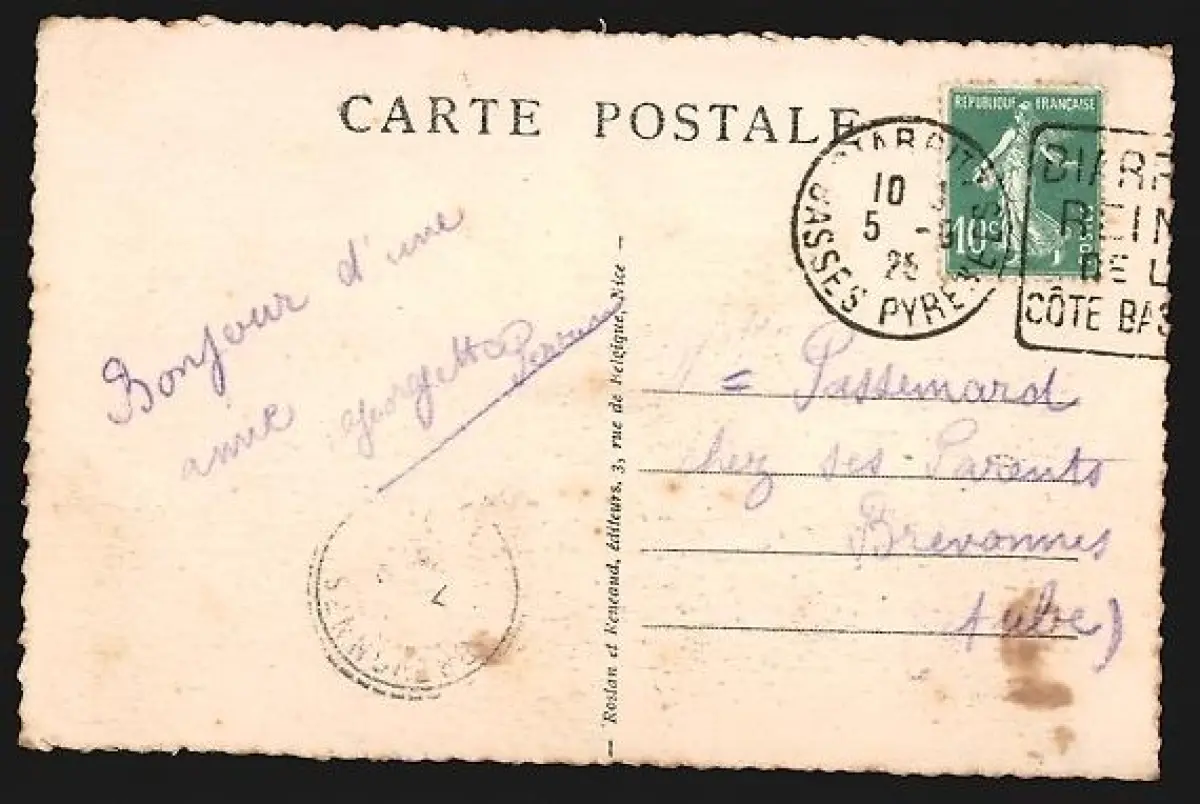 CARTE POSTALE
REPUBLIQUE FRANÇAISE
10c
POSTES
BIARRITZ
10
5 -9
25
BASSES PYRENEES
BIARR
REIN
DE L
CÔTE BAS
Bonjour d'une
amie Georgette
Roslan et Reneaud, éditeurs, 3, rue de Belgique, Nice
Passemard
chez ses Parents
Brevonnes
Aube)
7
BREVONNES